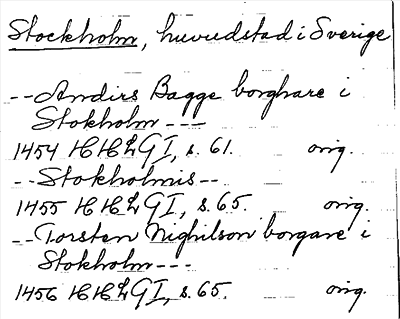 Stockholm, huvudstad i Sverige
--Andirs Bagge borghare i
Stokholm ---
1454 HHLG I, s. 61. orig.
--Stokholmis--
1455 HHLG I, s. 65. orig.
--Torsten Nighilson borgare i
Stokholm---
1456 HHLG I, s. 65. orig.